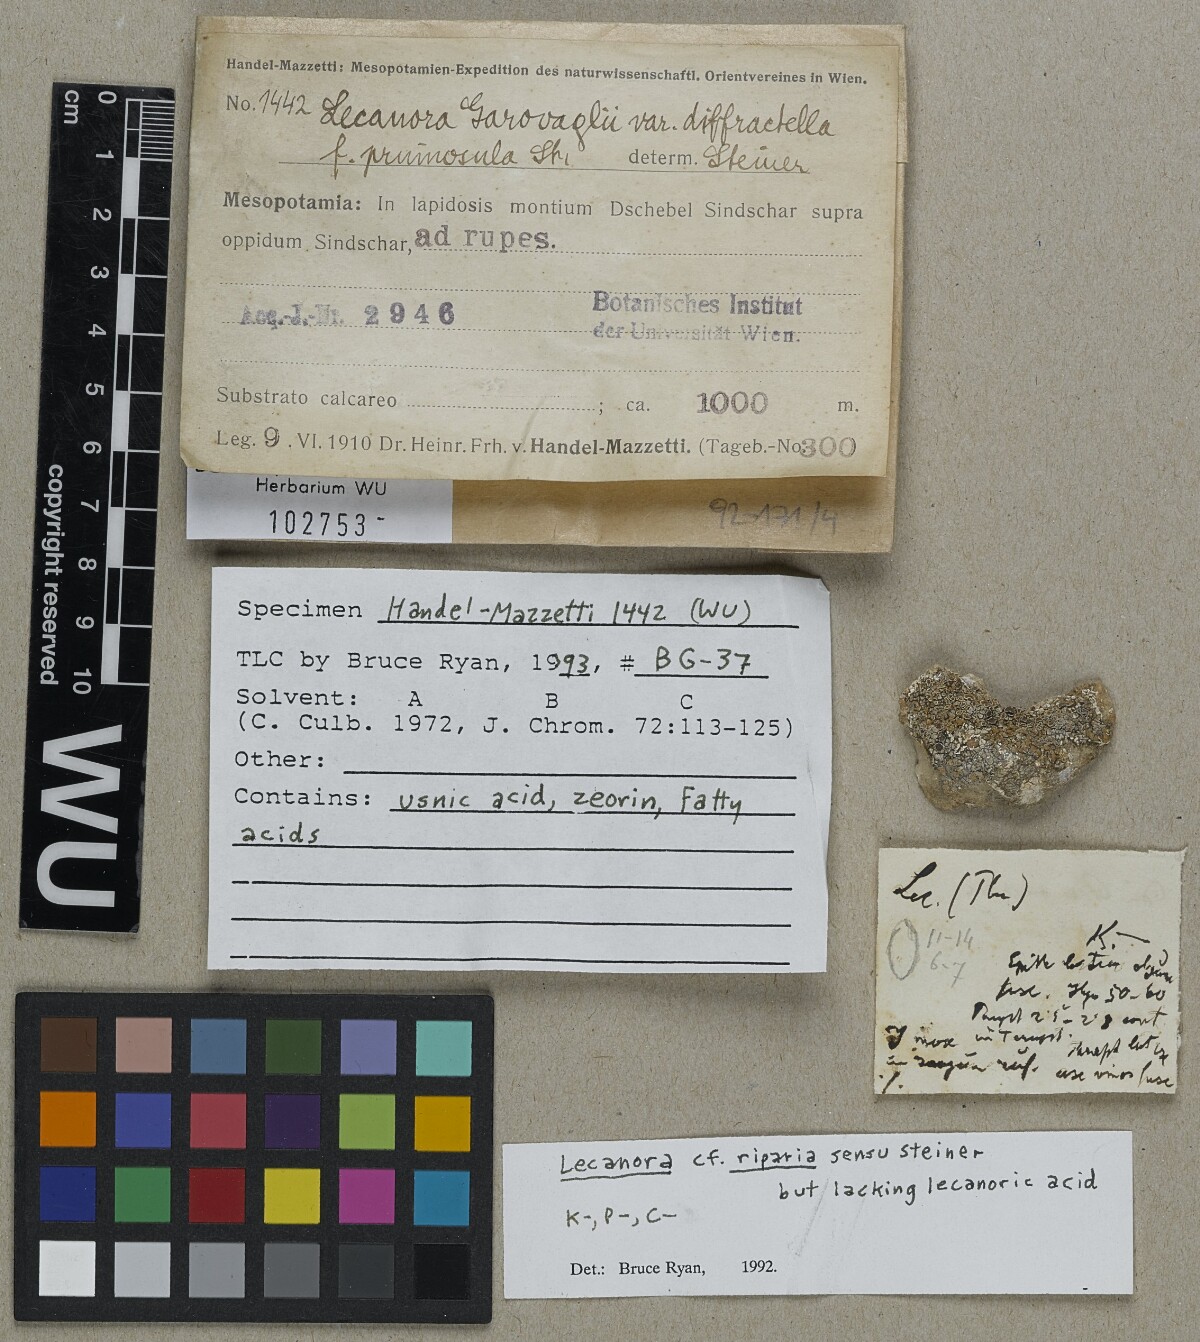 Handel-Mazzetti: Mesopotamien-Expedition des naturwissenschaftl. Orientvereines in Wien.
No. 1442 Lecanora Garovaglii var. diffractella
f. pruinosula Str. determ. Steiner
Mesopotamia: In lapidosis montium Dschebel Sindschar supra
oppidum Sindschar, ad rupes.
Acq.-J.-Nr. 2946
Botanisches Institut
der Universität Wien.
Substrato calcareo ; ca. 1000 m.
Leg. 9. VI. 1910 Dr. Heinr. Frh. v. Handel-Mazzetti. (Tageb.-No. 300)
Herbarium WU
102753-
92-171/4
cm
0
1
2
3
4
5
6
7
8
9
10
copyright reserved
WU
Specimen Handel-Mazzetti 1442 (WU)
TLC by Bruce Ryan, 1993, # BG-37
Solvent: A B C
(C. Culb. 1972, J. Chrom. 72:113-125)
Other:
Contains: usnic acid, zeorin, Fatty
acids
Lec.
11-14
6-7
K.-
50-60
Lecanora cf. riparia sensu steiner
but lacking lecanoric acid
K-, P-, C-
Det.: Bruce Ryan, 1992.